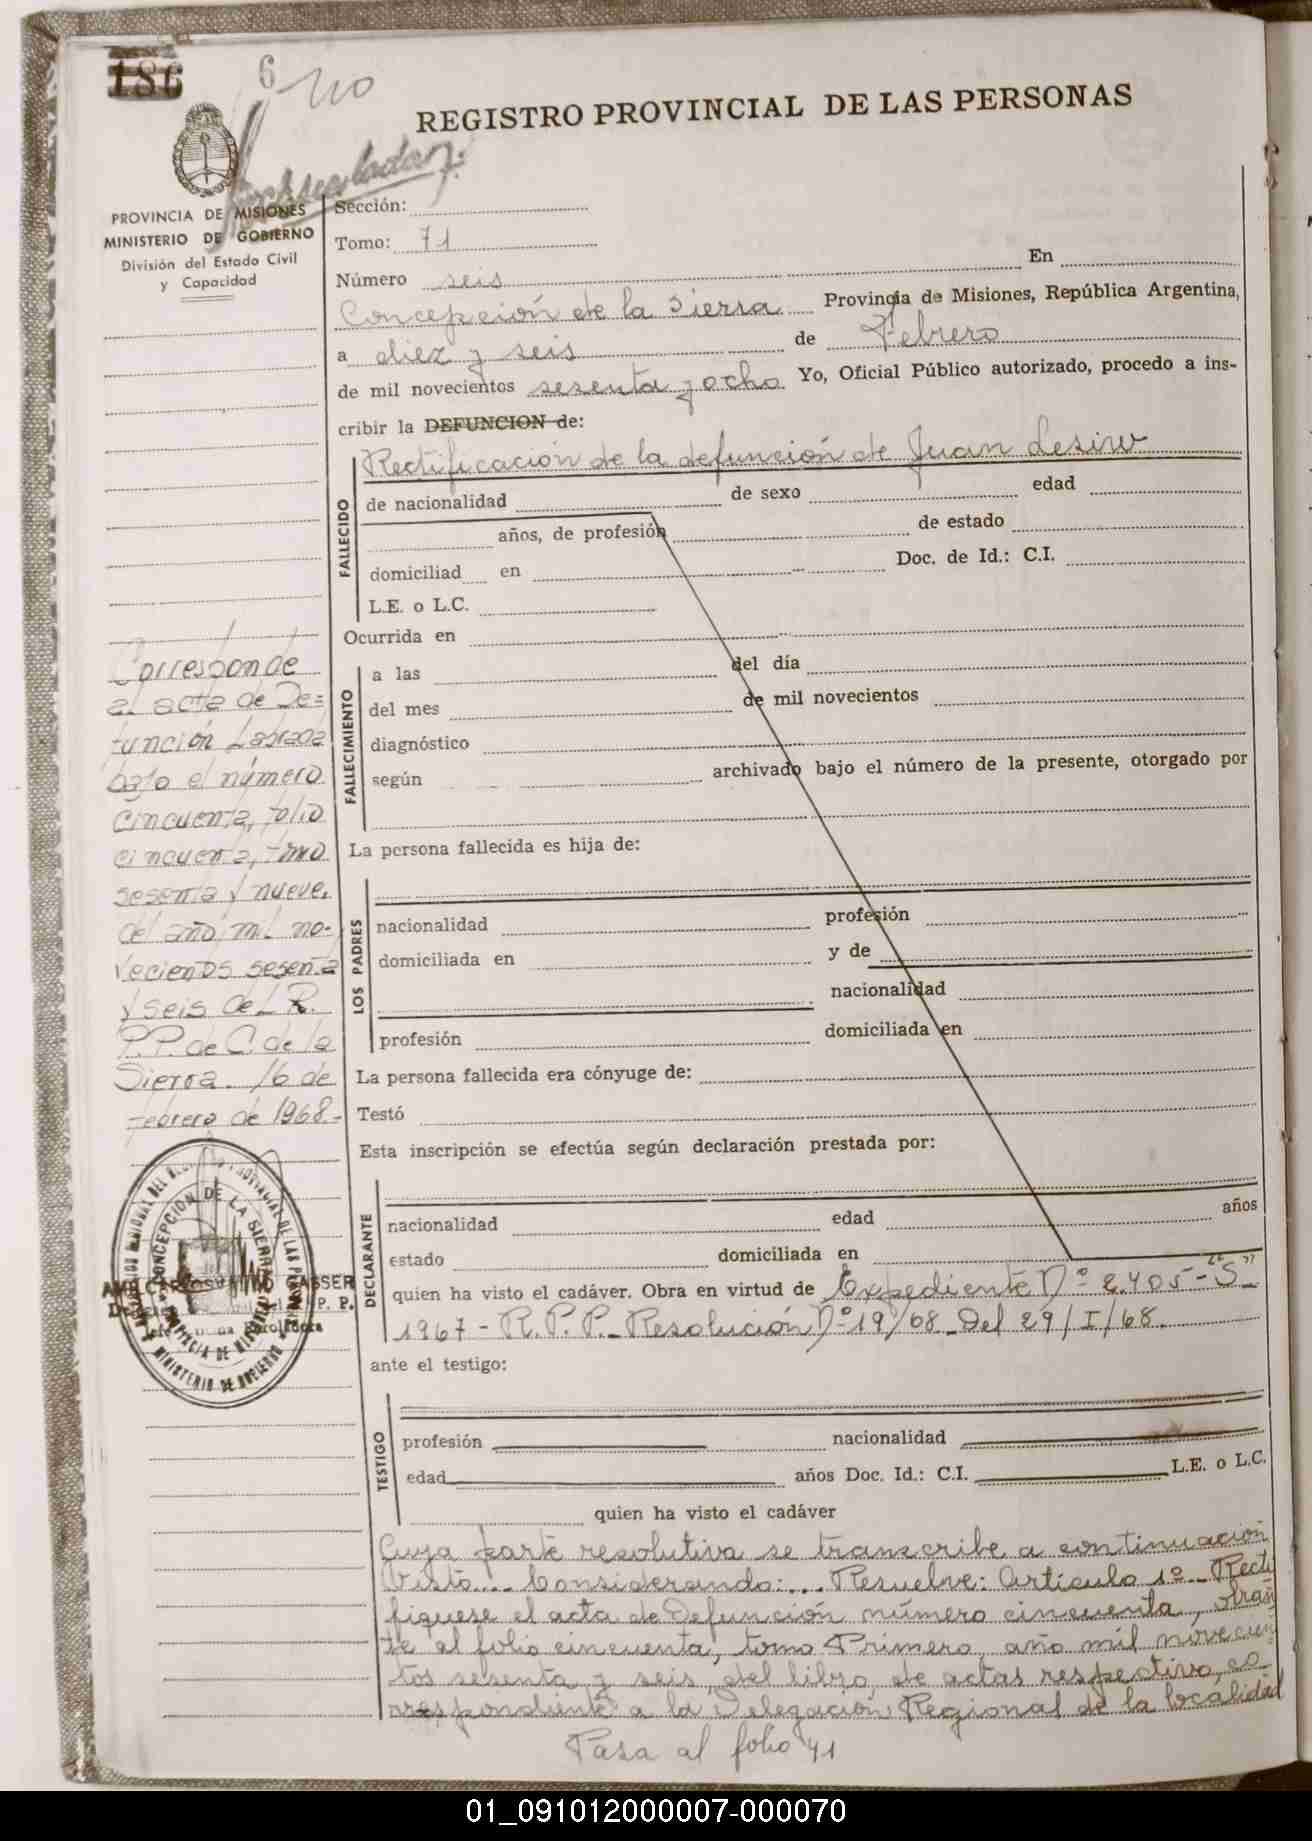 186
6
REGISTRO PROVINCIAL DE LAS PERSONAS
PROVINCIA DE MISIONES
MINISTERIO DE GOBIERNO
División del Estado Civil
y Capacidad
Sección:
Tomo: 71
Número seis En
Concepción de la Sierra Provincia de Misiones, República Argentina,
a diez y seis de Febrero
de mil novecientos sesenta y ocho Yo, Oficial Público autorizado, procedo a ins-
cribir la DEFUNCION de:
Rectificación de la defunción de Juan Lesiw
FALLECIDO
de nacionalidad de sexo edad
años, de profesión de estado
domiciliad en Doc. de Id.: C.I.
L.E. o L.C.
Ocurrida en
FALLECIMIENTO
a las del día
del mes de mil novecientos
diagnóstico
según archivado bajo el número de la presente, otorgado por
La persona fallecida es hija de:
LOS PADRES
nacionalidad profesión
domiciliada en y de
nacionalidad
profesión domiciliada en
La persona fallecida era cónyuge de:
Testó
Esta inscripción se efectúa según declaración prestada por:
DECLARANTE
nacionalidad edad años
estado domiciliada en
quien ha visto el cadáver. Obra en virtud de Expediente Nº 2.405-"S"-
1967 - R.P.P. - Resolución Nº 19/68 - Del 29/I/68.
ante el testigo:
TESTIGO
profesión nacionalidad
edad años Doc. Id.: C.I. L.E. o L.C.
quien ha visto el cadáver
Cuya parte resolutiva se transcribe a continuación
Visto... Considerando:... Resuelve: Articulo 1º - Recti
fiquese el acta de Defunción número cincuenta, obran
te al folio cincuenta, tomo Primero, año mil novecien
tos sesenta y seis, del libro, de actas respectivo, co
rrespondiente a la Delegación Regional de la localidad
Pasa al folio 71
Corresponde
al acta de De=
función Labrada
bajo el número
cincuenta, folio
cincuenta, tomo
sesenta y nueve,
del año mil no-
vecientos sesenta
y seis del R.
P.P. de C. de la
Sierra. 16 de
febrero de 1968.-
CONCEPCION DE LA SIERRA
PROVINCIA DE MISIONES
MINISTERIO DE GOBIERNO
01_091012000007-000070